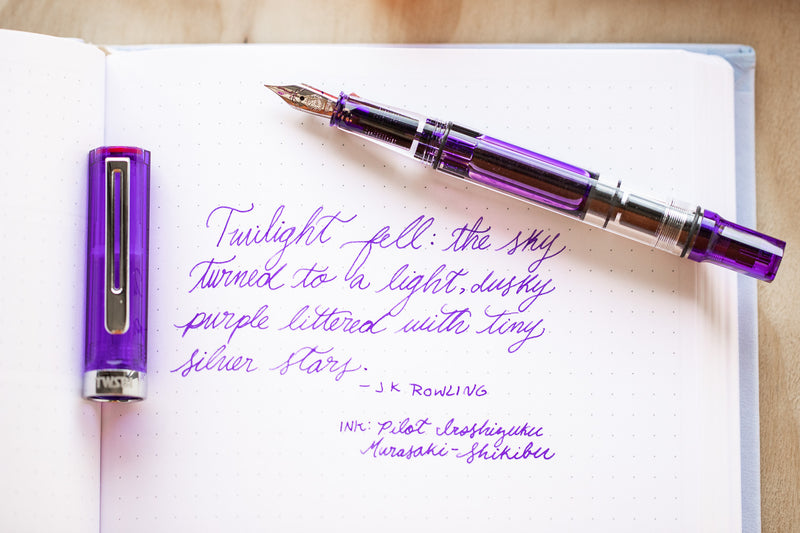 Twilight fell: the sky
turned to a light, dusky
purple littered with tiny
silver stars.
- JK ROWLING
INK: Pilot Iroshizuku
Murasaki-Shikibu
TWSBI